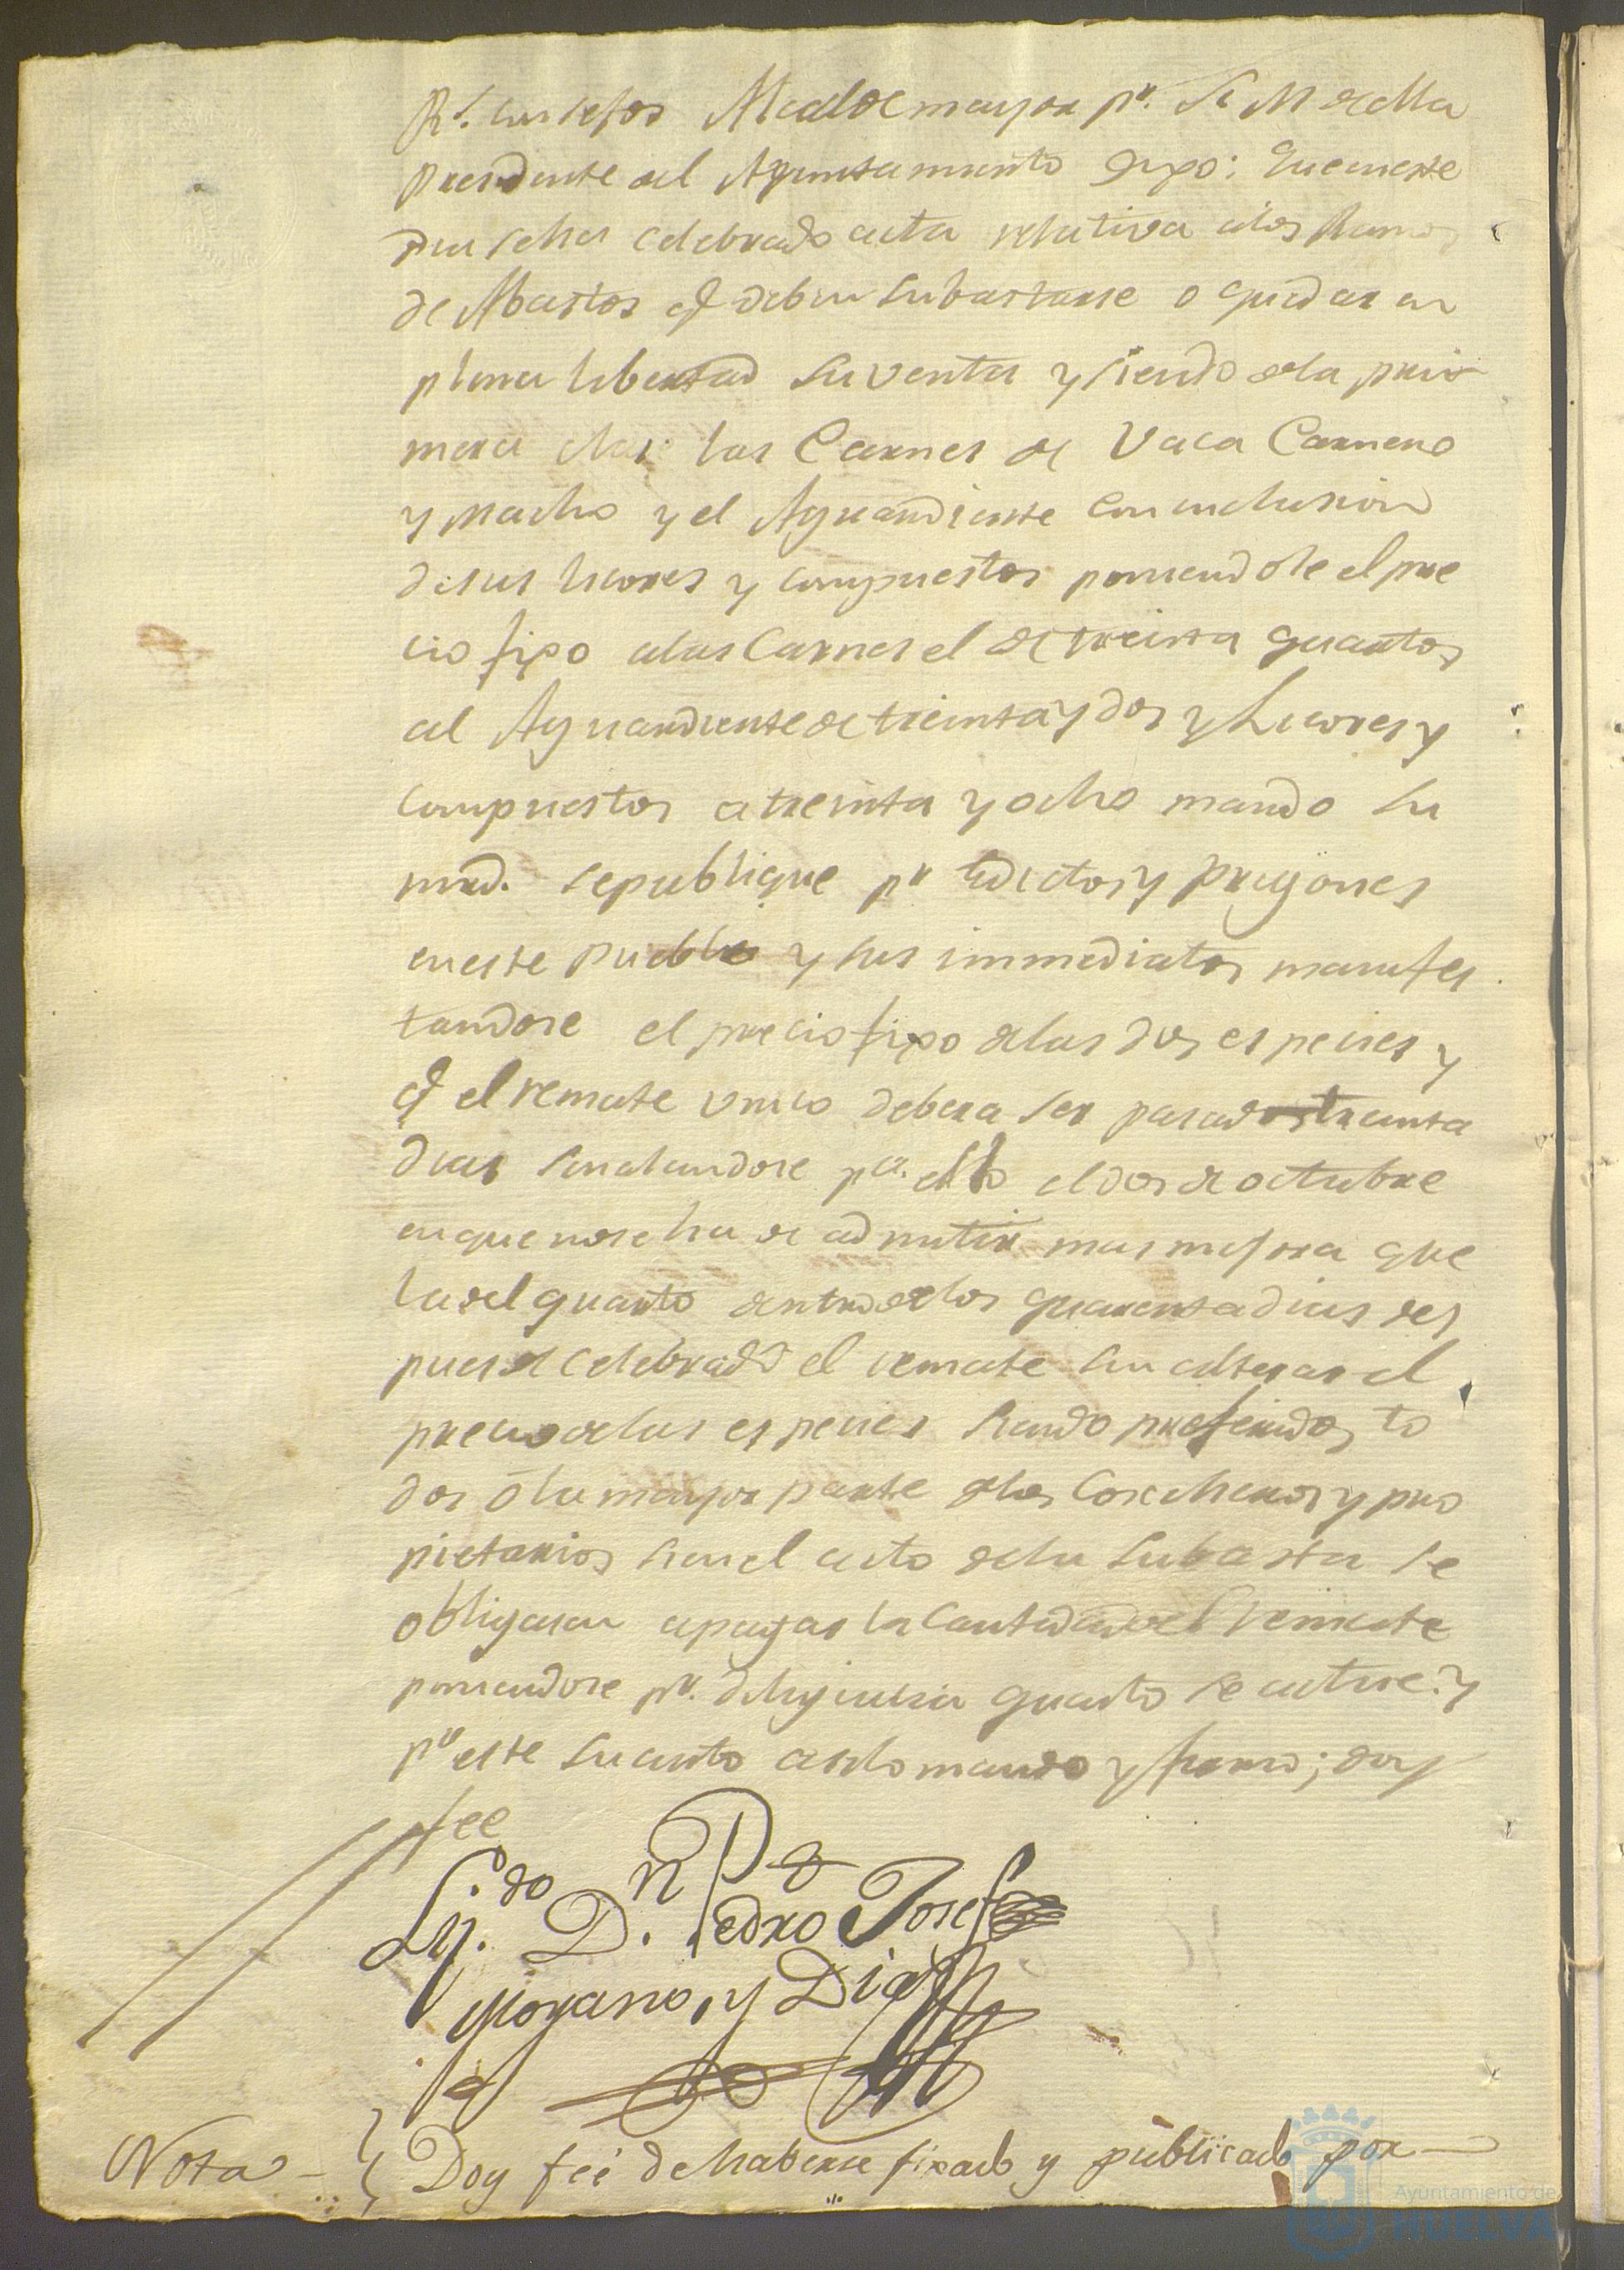 Rs. Consejos Alcalde mayor pr. S. M. de ella
Presidente del Ayuntamiento Dixo: Que en este
dia se ha celebrado acta relativa a los Ramos
de Abastos q deben subastarse o quedar en
plena libertad su venta y siendo de la pri
mera clase las Carnes de Vaca Carnero
y Macho y el Aguardiente con inclusion
de sus licores y compuestos poniendole el pre
cio fixo a las Carnes el de treinta quartos
al Aguardiente de treinta y dos y Licores y
compuestos a treinta y ocho mando su
mrd. se publique pr Edictos y pregones
en este Pueblo y sus immediatos manifes
tandose el precio fixo de las dos especies y
q el remate unico debera ser pasados treinta
dias señalandose pa. ello el dos de octubre
en que no se ha de admitir mas mejora que
la del quarto dentro de los quarenta dias des
pues de celebrado el remate sin alterar el
precio de las especies siendo preferidos to
dos ó la mayor parte de los Cosecheros y pro
pietarios si en el acto de la subasta se
obligasen a pagar la Cantidad del remate
poniendose pr. diligencia quanto se actue: y
pr este su auto asi lo mando y firmo; doy
fee
Lizdo. Dn. Pedro Josef
Moyano, y Diaz
Nota - Doy feé de haberse fixado y publicado por
Ayuntamiento de
HUELVA